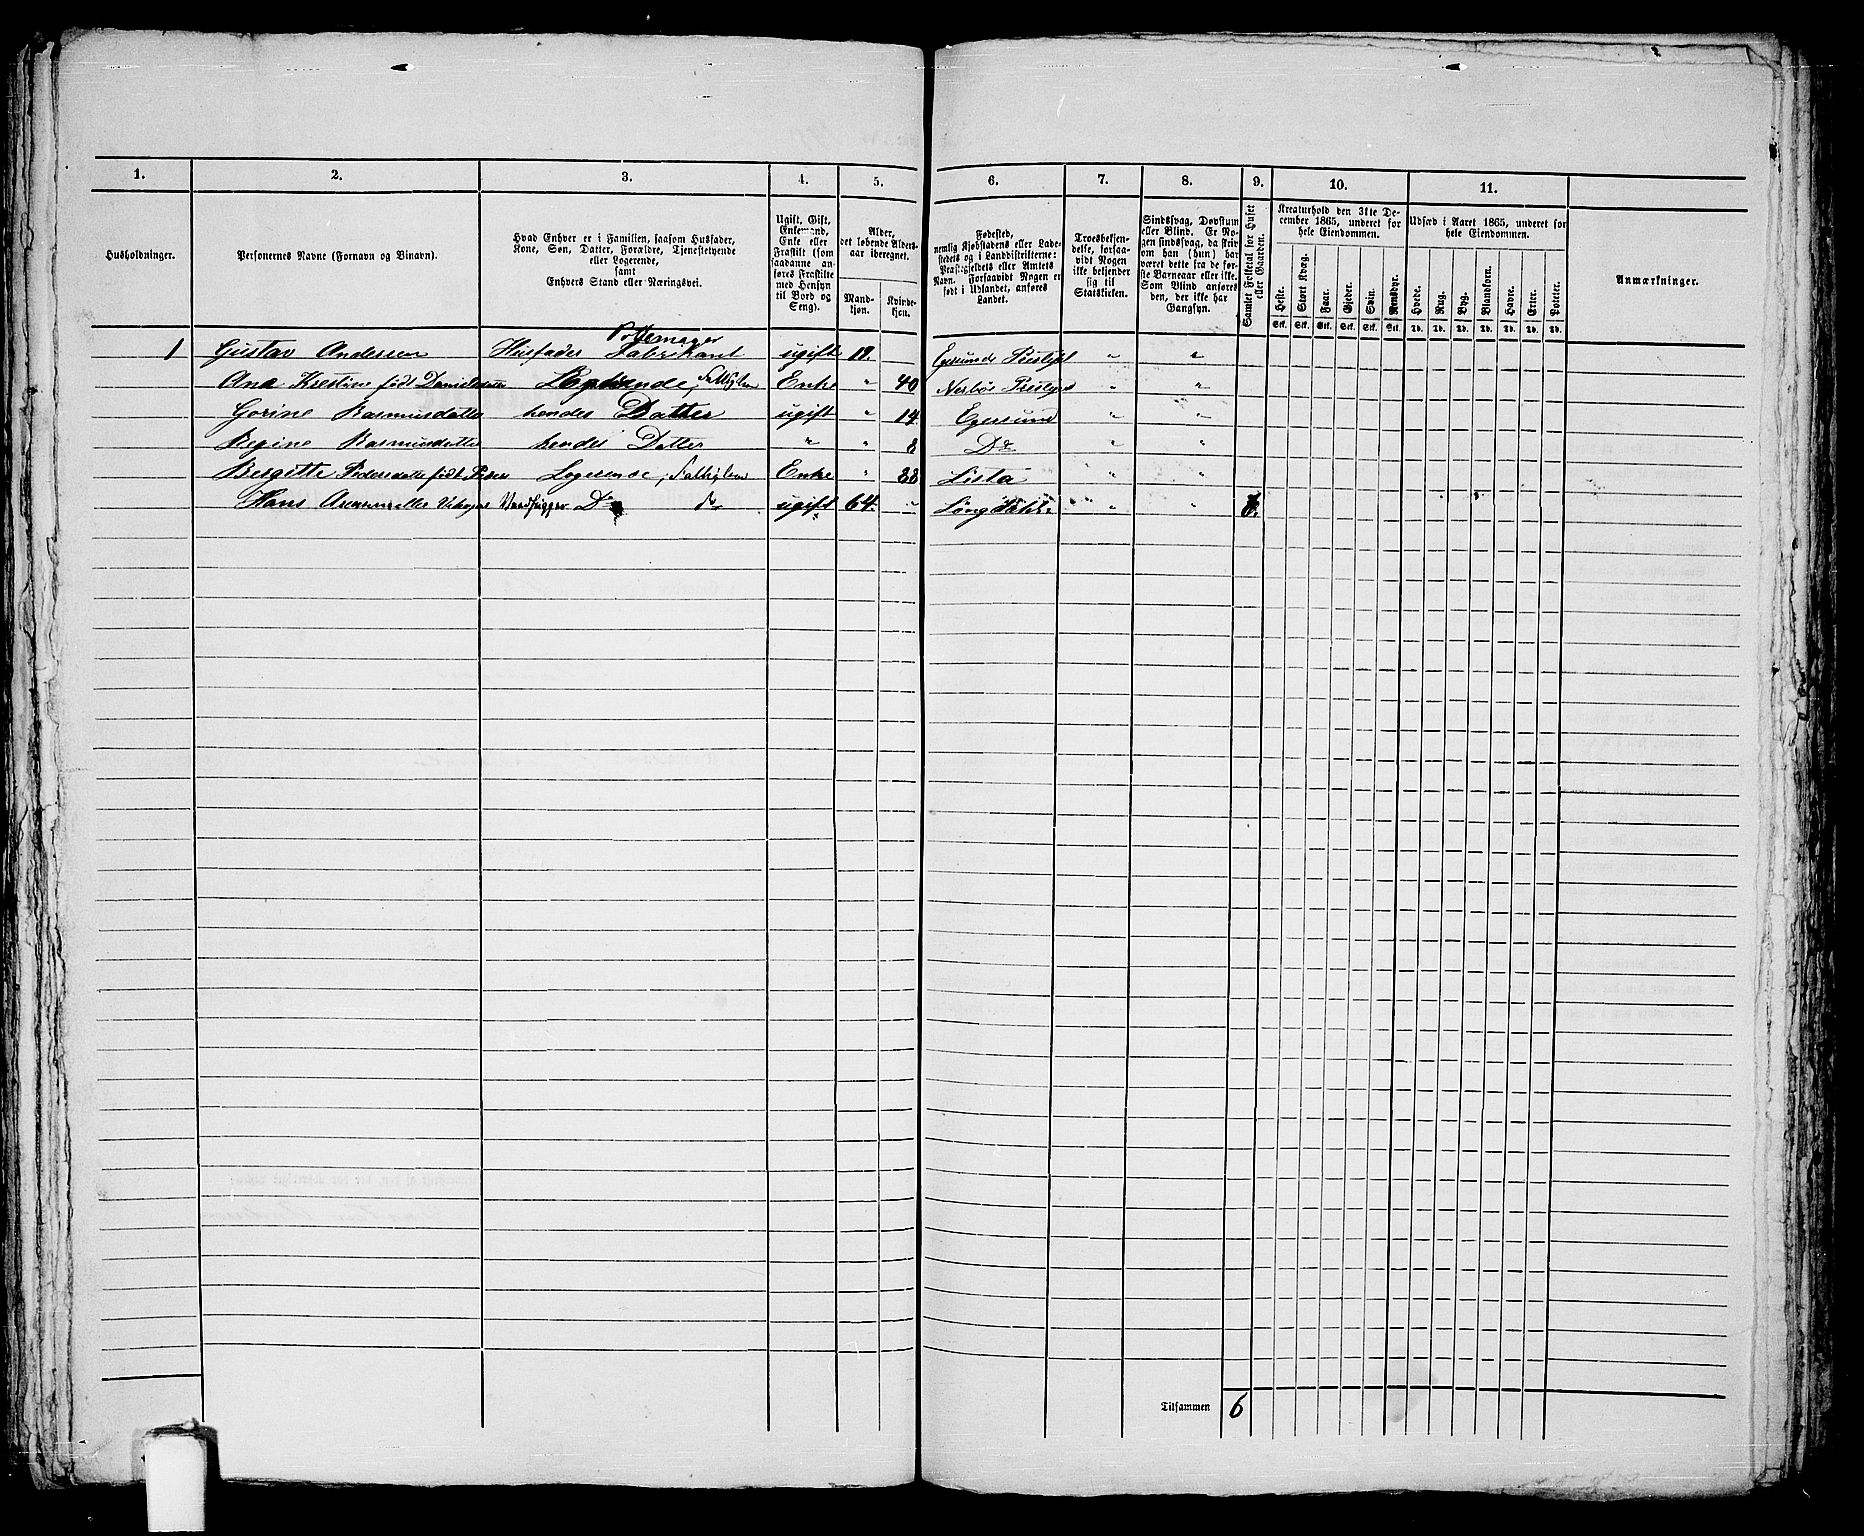 1. 2. 3. 4. 5. 6. 7. 8. 9. 10. 11.
Husholdninger.
Personernes Navne (Fornavn og Binavn).
Hvad Enhver er i Familien, saasom Husfader,
Kone, Søn, Datter, Forældre, Tjenestetyende
eller Logerende,
samt
Enhvers Stand eller Næringsvei.
Ugift, Gift,
Enkemand,
Enke eller
Fraskilt (som
saadanne an-
føres Fraskilte
med Hensyn
til Bord og
Seng).
Alder,
det løbende Alders-
aar iberegnet.
Mand-
kjøn.
Kvinde-
kjøn.
Fødested,
nemlig Kjøbstadens eller Lade-
stedets og i Landdistrikterne:
Præstegjeldets eller Amtets
Navn. Forsaavidt Nogen er
født i Udlandet, anføres
Landet.
Troesbekjen-
delse, forsaa-
vidt Nogen
ikke bekjender
sig til
Statskirken.
Sindssvag, Døvstum
eller Blind. Er No-
gen sindssvag, da skriv
om han (hun) har
været dette fra de før-
ste Barneaar eller ikke.
Som Blind anføres
den, der ikke har
Gangsyn.
Samlet Folketal for Huset
eller Gaarden.
Kreaturhold den 31te De-
cember 1865, underet for
hele Eiendommen.
Heste. Stort Kvæg. Faar. Gjeder. Svin. Rensdyr.
Stk. Stk. Stk. Stk. Stk. Stk.
Udsæd i Aaret 1865, underet for
hele Eiendommen.
Hvede. Rug. Byg. Blandkorn. Havre. Erter. Poteter.
Td. Td. Td. Td. Td. Td. Td.
Anmærkninger.
Pottemager
1 Gustav Andersen Husfader Fabrikant ugift 19. Egersunds Prestgd " "
Ana Krestine født Danielsen Logerende, Enke " 40 Prestgd " "
Gorine Rasmusdatter hendes Datter ugift " 14 Egersund " "
Regine Rasmusdatter hendes Datter " " 8 Do " "
Bergitte Pedersdatter født Peder Logerende, Enke " 83 Lista " "
Hans Do do ugift 64. " " " 6.
Tilsammen 6